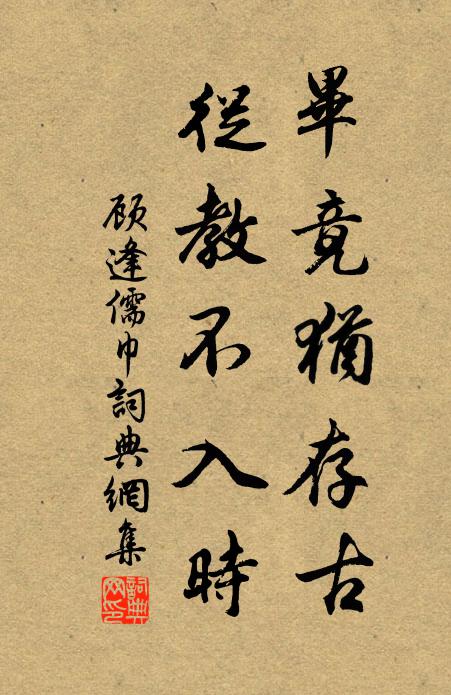 畢竟猶存古
從教不入時
顾逢儒巾詞典網集
詞典網印